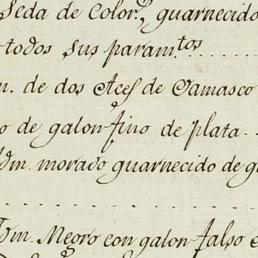 Seda de Color.^s, guarnecido
todos sus param.^tos
m. de dos Aces de Damasco
o de galon fino de plata
Ydm. morado guarnecido de g
Ydm. Negro con galon falso